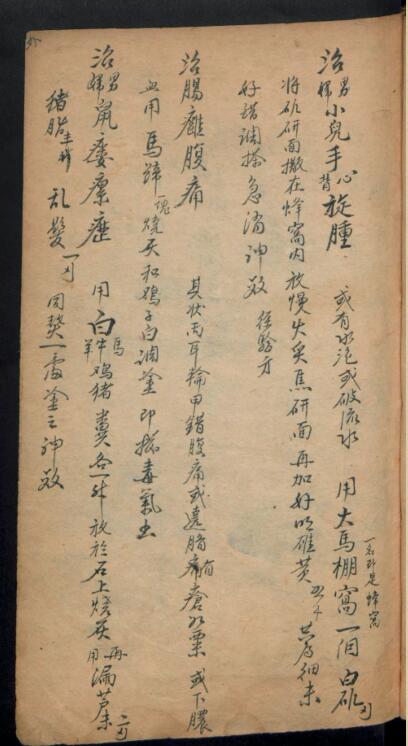 治男婦小兒手心背旋腫 或有水泡或破流水 用大馬棚窩一個 一名即是蜂窩 白矾
將矾研面撒在蜂窩內 放慢火炙焦研面 再加好明雄黃 共為細末
好醋調搽急消神效 經驗方
治腸癰腹痛 其狀兩耳輪甲錯腹痛或遶臍有瘡如粟 或下膿
血用馬蹄一塊燒灰和鸡子白調塗即拔毒氣出
治男婦鼠瘻瘰癧 用白馬牛羊鸡猪糞各一 放於石上燒灰再用漏蘆
猪脂 乱髮 同熬一處塗之神效